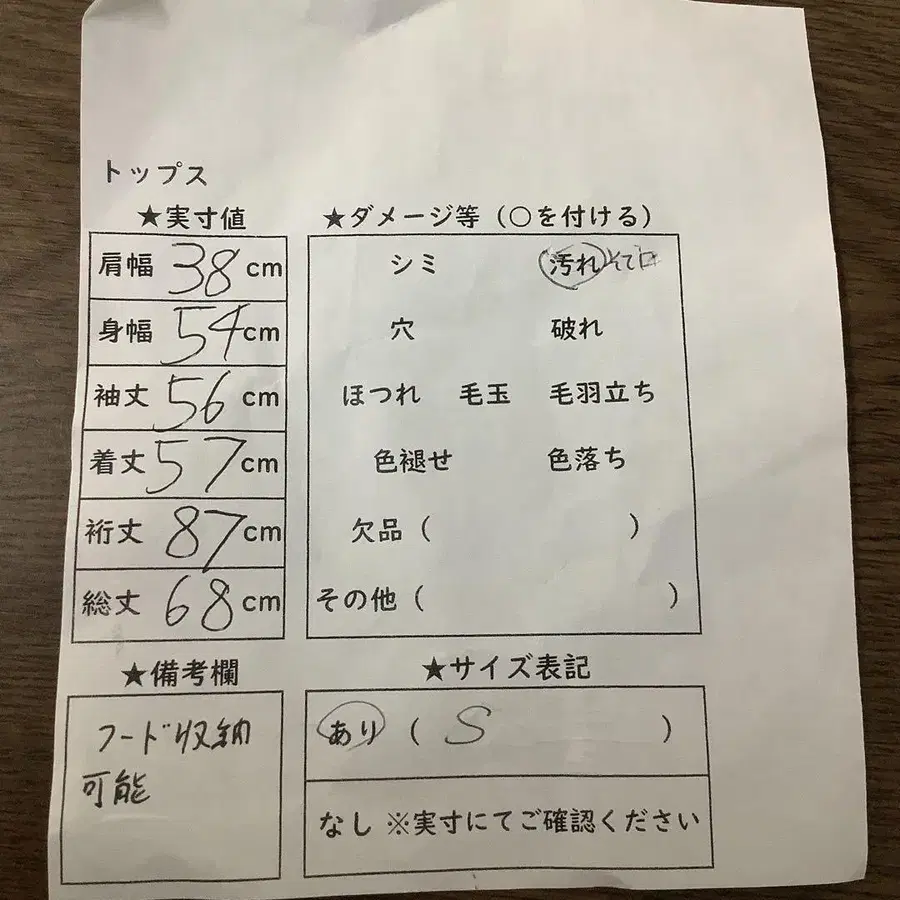 トップス
★実寸値
肩幅 38 cm
身幅 54 cm
袖丈 56 cm
着丈 57 cm
裄丈 87 cm
総丈 68 cm
★ダメージ等（○を付ける）
シミ 汚れ そで口
穴 破れ
ほつれ 毛玉 毛羽立ち
色褪せ 色落ち
欠品（ ）
その他（ ）
★備考欄
フード収納
可能
★サイズ表記
あり（ S ）
なし ※実寸にてご確認ください